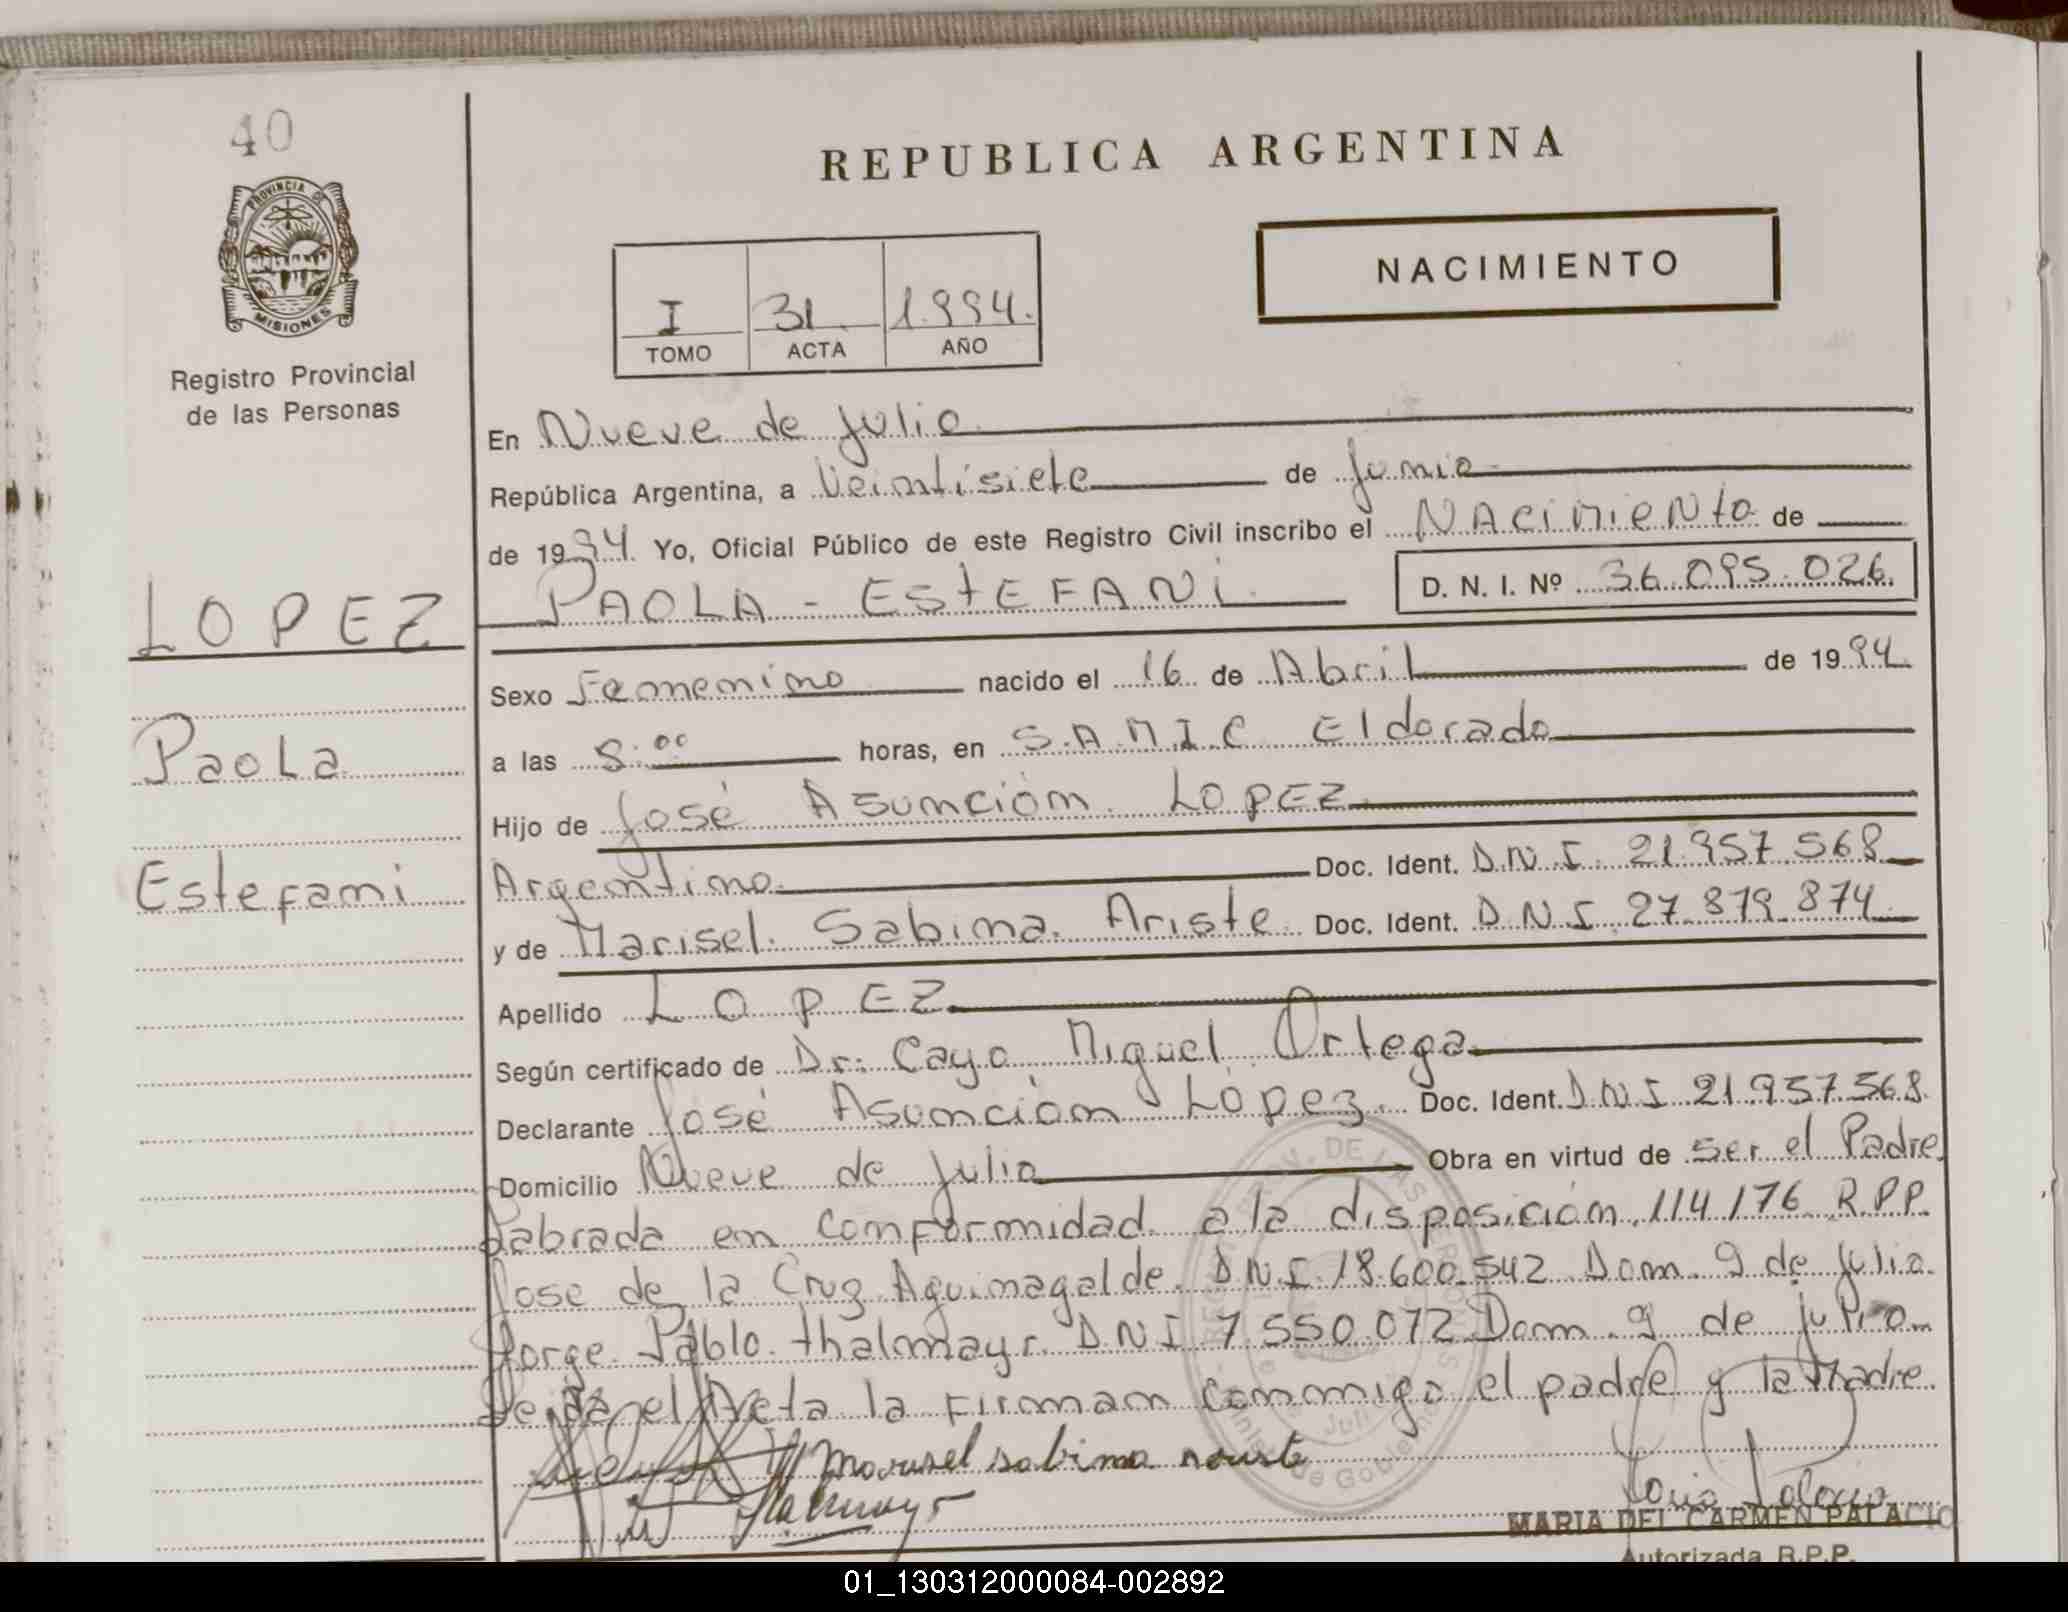 40
PROVINCIA DE
MISIONES
Registro Provincial
de las Personas
REPUBLICA ARGENTINA
NACIMIENTO
I 31 1.994.
TOMO ACTA AÑO
En Nueve de Julio
República Argentina, a Veintisiete de Junio
de 1994. Yo, Oficial Público de este Registro Civil inscribo el NAcimieNto de
PAOLA - EStEFANi D. N. I. Nº 36.095.026.
LOPEZ
Paola
Estefani
Sexo Femenino nacido el 16 de Abril de 1994
a las 8:00 horas, en S.A.M.I.C Eldorado
Hijo de José Asunción LOPEZ
Argentino. Doc. Ident. D.N.I. 21.957.568
y de Marisel Sabina Ariste Doc. Ident. D.N.I 27.879.874
Apellido LOPEZ
Según certificado de Dr: Cayo Miguel Ortega
Declarante José Asunción López Doc. Ident. D.N.I 21.957.568.
Domicilio Nueve de Julio Obra en virtud de ser el Padre.
Labrada en conformidad a la disposición 114/76 R.P.P.
Jose de la Cruz Aguinagalde. D.N.I. 18.600.542 Dom. 9 de Julio.
Jorge Pablo thalmayr. D.N.I 7.550.072 Dom. 9 de julio
Leida el Acta la Firman conmigo el padre y la Madre.
Marisel sabina ariste
Thalmayr
MARIA DEL CARMEN PALACIO
Autorizada R.P.P.
01_130312000084-002892